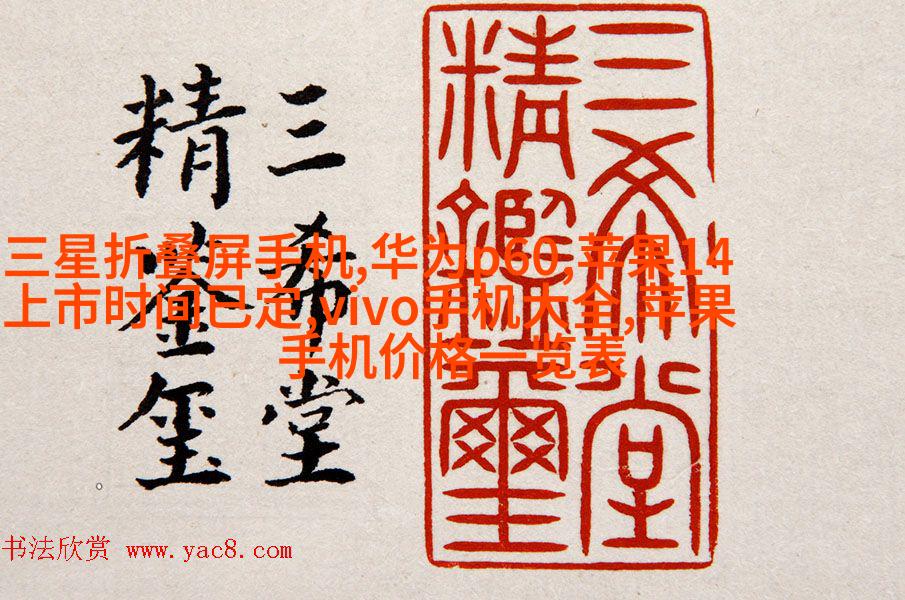 三希堂
精鉴玺
三希堂
精鑑璽
三星折叠屏手机,华为p60,苹果14
上市时间已定,vivo手机大全,苹果
手机价格一览表
书法欣赏 www.yac8.com